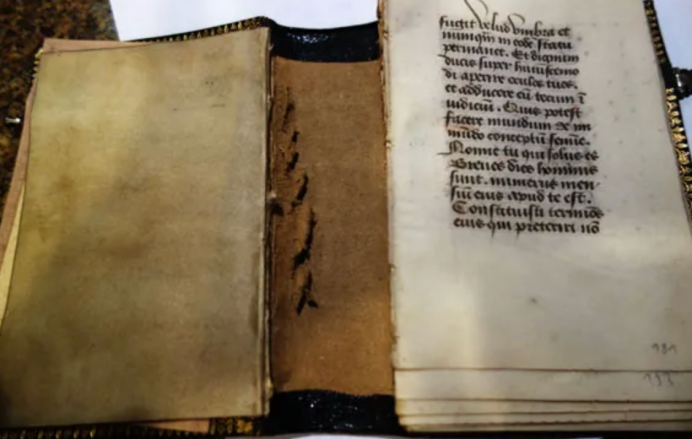 fugit velud vmbra et
numq̄m in eode statu
permanet. Et dignum
ducis super huiuscemo
di aperire oculos tuos.
et adducere eū tecum ī
iudiciū. Quis potest
facere mundum de im
mūdo conceptū semīe.
Nonne tu qui solus es
Breues dies hominis
sunt. numerus men-
siū eius apud te est.
Constituisti terminos
eius qui preteriri nō
181